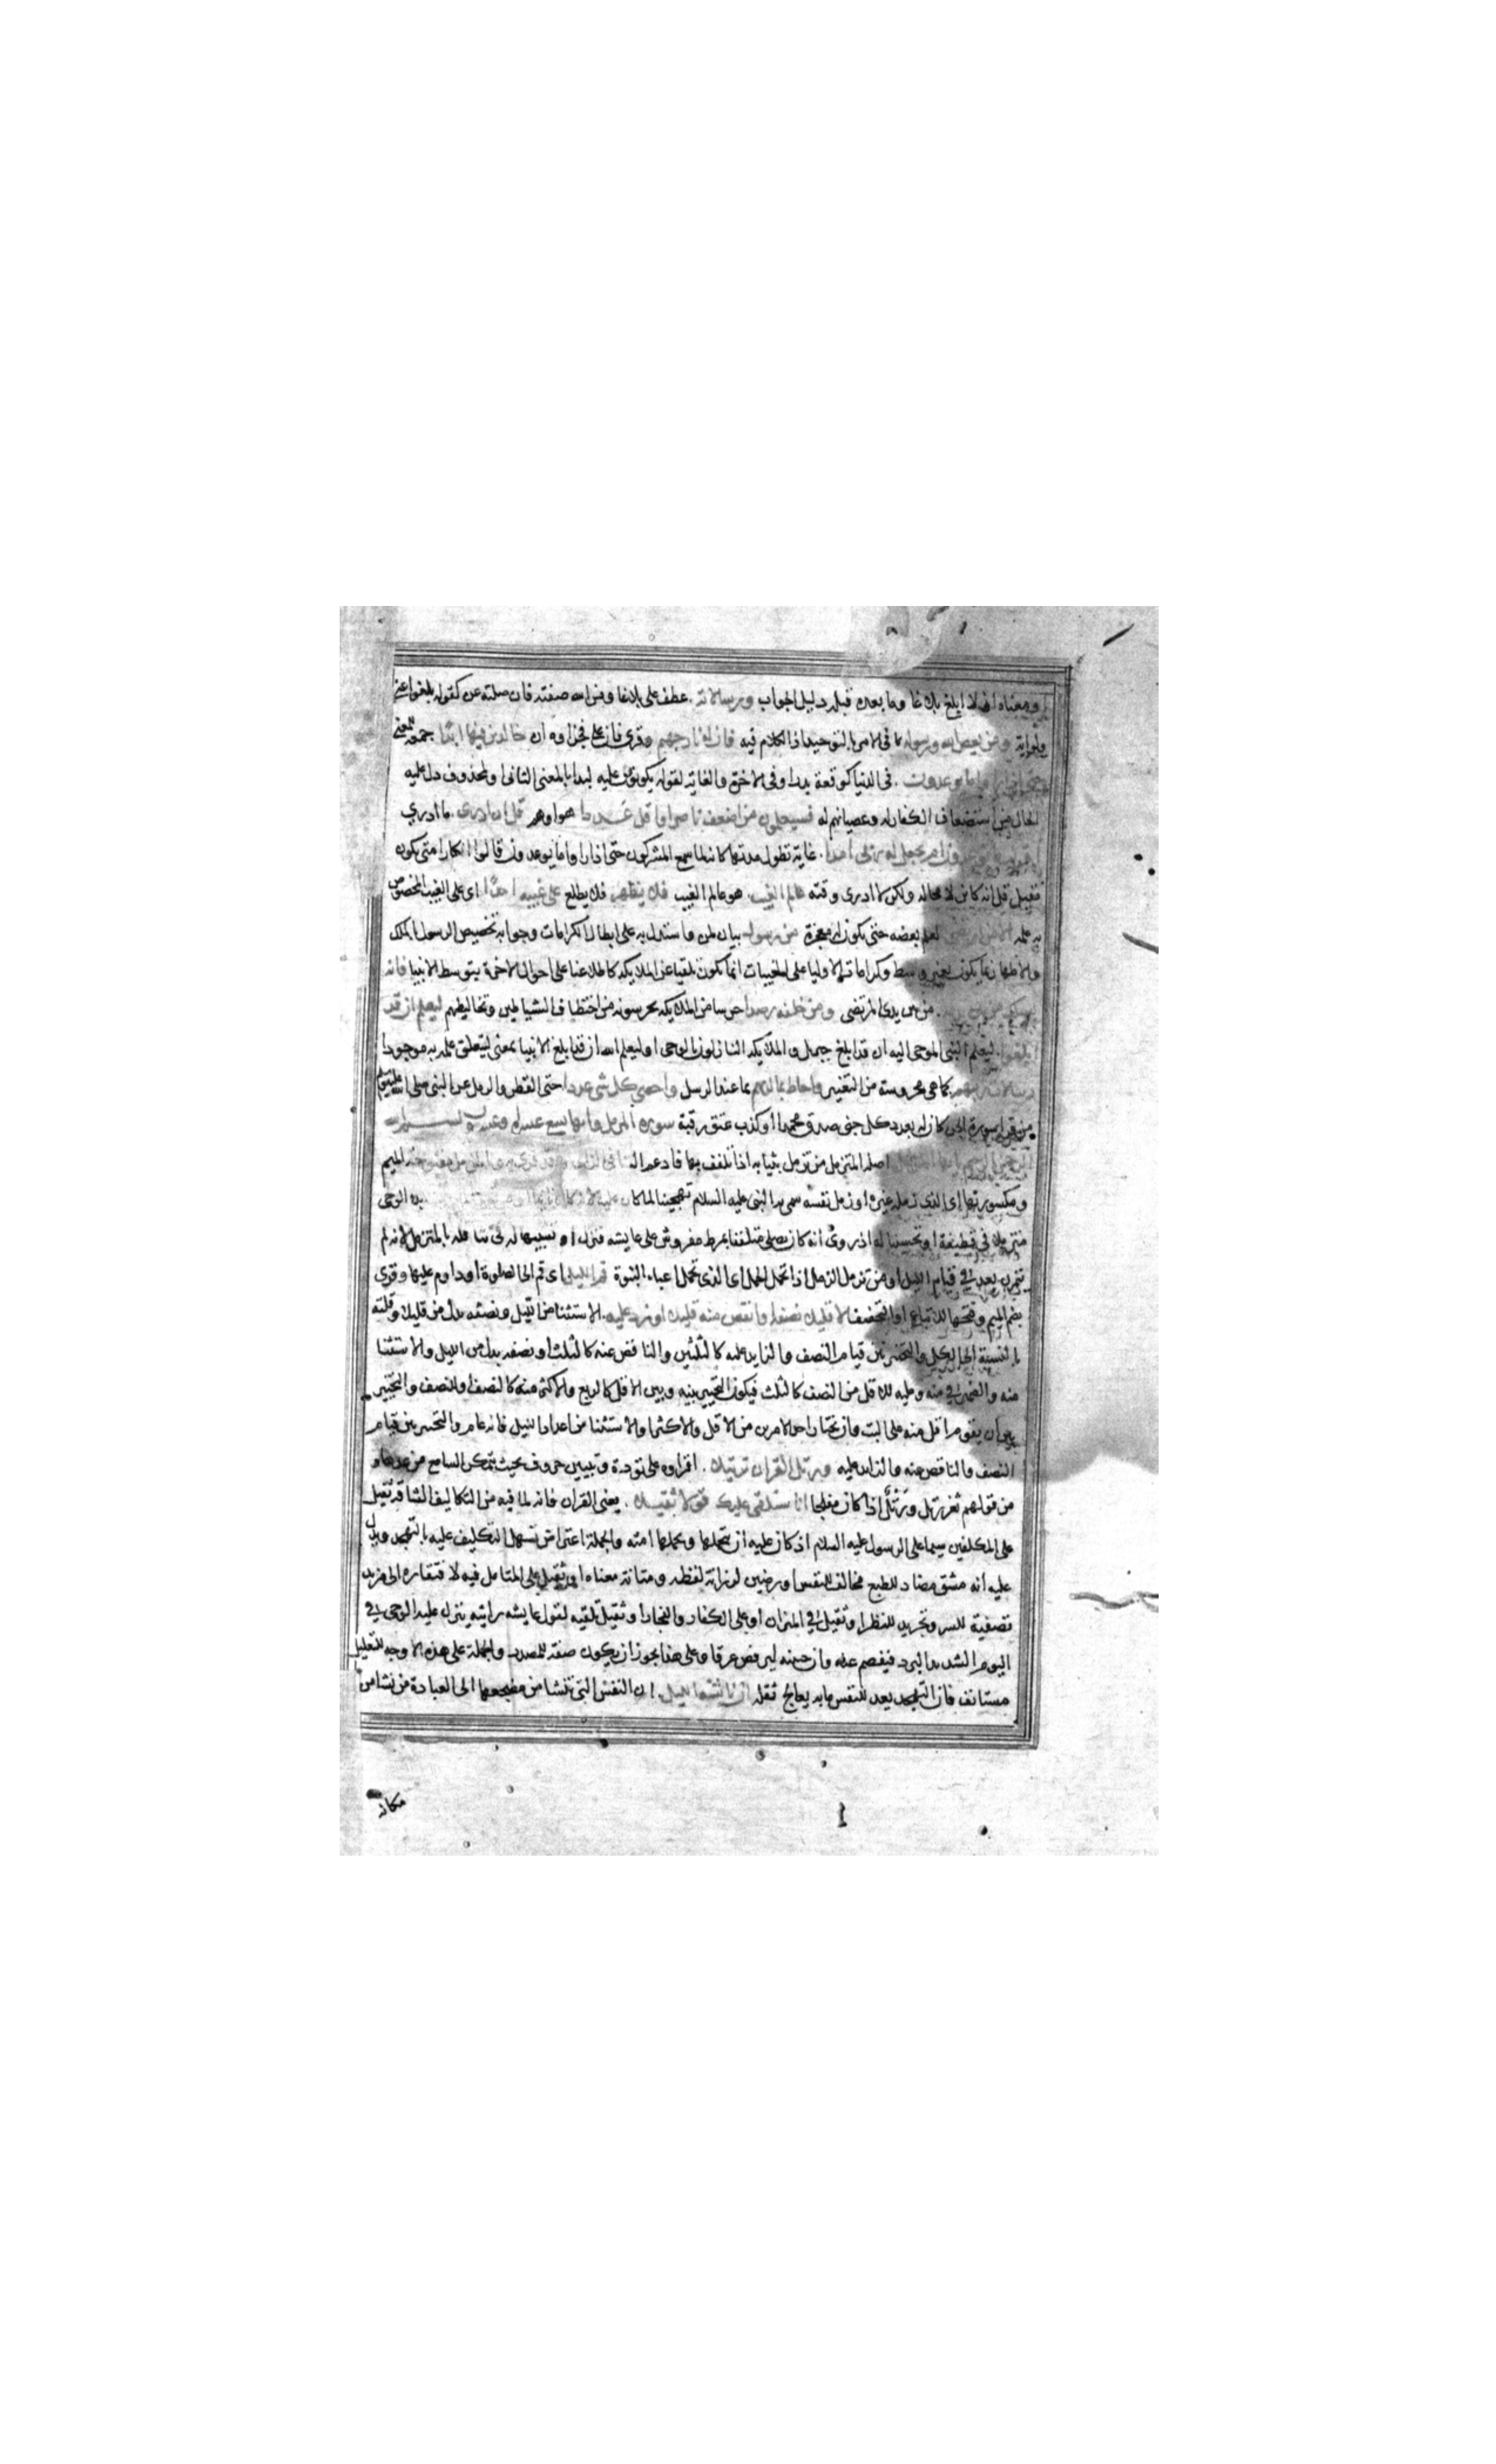 ومعناه ان لا ابلغ بلاغا وما بعده قبله دليل الجواب ورسالاته . عطف على بلاغا ومن الله صفته فان صلته عن كقوله بلغوا عني
ولو اية ومن يعص الله ورسوله في الامر بالتوحيد اذ الكلام فيه فان له نار جهنم وقرئ فان على فجزاوه ان خالدين فيها ابدا جمعه للمعنى
حتى اذا راوا ما يوعدون . في الدنيا كوقعة بدر او في الاخرة والغاية لقوله يكونون عليه لبدا بالمعنى الثاني او لمحذوف دل عليه
الحال من استضعاف الكفار له وعصيانهم له فسيعلمون من اضعف ناصرا واقل عددا هو او هم قل ان ادري . ما ادري
ام يجعل له ربي امدا . غاية تطول مدتها كانه لما سمع المشركون حتى اذا راوا ما يوعدون قالوا انكارا متى يكون
فقيل قل انه كائن لا محالة ولكن لا ادري وقته عالم الغيب . هو عالم الغيب فلا يظهر فلا يطلع على غيبه احدا اي على الغيب المخصوص
به علمه الا من ارتضى لعلم بعضه حتى يكون له معجزة من رسول بيان لمن واستدل به على ابطال الكرامات وجوابه تخصيص الرسول بالملك
والاظهار بما يكون بغير وسط وكرامات الاوليا على المغيبات انما تكون تلقيا عن الملايكة كاطلاعنا على احوال الاخرة بتوسط الانبيا فانه
يسلك من بين يديه . من بين يدي المرتضى ومن خلفه رصدا حرسا من الملايكة يحرسونه من اختطاف الشياطين وتخاليطهم ليعلم ان قد
ابلغوا . ليعلم النبي الموحى اليه ان قد ابلغ جبريل والملايكة النازلون بالوحي او ليعلم الله ان قد ابلغ الانبيا بمعنى ليتعلق علمه به موجودا
رسالات ربهم كما هي محروسة من التغيير واحاط بما لديهم بما عند الرسل واحصى كل شي عددا حتى القطر والرمل عن النبي صلى الله عليه وسلم
من قرا سورة الجن كان له بعدد كل جني صدق محمدا او كذب عتق رقبة سورة المزمل وايها تسع عشرة او عشرون
اصله المتزمل من تزمل بثيابه اذا تلفف بها فادغم التا في الزاي وقد قرئ به وبالمزمل مفتوحة الميم
ومكسورتها اي الذي زمله غيره او زمل نفسه سمي به النبي عليه السلام تهجينا لما كان عليه بدء الوحي
متزملا في قطيفة او تحسينا له اذ روي انه كان يصلي متلففا بمرط مفروش على عايشه فنزل او تشبيها له في تثاقله بالمتزمل لانه لم
يتمرن بعد في قيام الليل او من تزمل الزمل اذا تحمل الحمل اي الذي تحمل اعباء النبوة قم الليل اي قم الى الصلوة او داوم عليها وقرئ
بضم الميم وفتحها للاتباع او التخفيف الا قليلا نصفه او انقص منه قليلا او زد عليه . الاستثنا من الليل ونصفه بدل من قليلا وقلته
بالنسبة الى الكل والتخيير بين قيام النصف والزايد عليه كالثلثين والناقص عنه كالثلث او نصفه بدل من الليل والاستثنا
منه والضمير في منه وعليه للاقل من النصف كالثلث فيكون التخيير بينه وبين الاقل كالربع والاكثر منه كالنصف او للنصف والتخيير
بين ان يقوم اقل منه على البت وان يختار احد الامرين من الاقل والاكثر او الاستثنا من اعداد الليل فانه عام والتخيير بين قيام
النصف والناقص عنه والزايد عليه ورتل القران ترتيلا . اقراه على تؤدة وتبيين حروف بحيث يتمكن السامع من عدها
من قولهم ثغر رتل ورتل اذا كان مفلجا انا سنلقي عليك قولا ثقيلا . يعني القران فانه لما فيه من التكاليف الشاقة ثقيل
على المكلفين سيما على الرسول عليه السلام اذ كان عليه ان يتحملها ويحملها امته والجملة اعتراض تسهل التكليف عليه بالتهجد ويدل
عليه انه مشق مضاد للطبع مخالف للنفس او رصين لرزانة لفظه ومتانة معناه او ثقيل على المتامل فيه لافتقاره الى مزيد
تصفية للسر وتجريد للنظر او ثقيل في الميزان او على الكفار والفجار او ثقيل تلقيه لقول عايشه رايته ينزل عليه الوحي في
اليوم الشديد البرد فيفصم عنه وان جبينه ليرفض عرقا وعلى هذا يجوز ان يكون صفة للمصدر والجملة على هذه الاوجه للتعليل
مستانف فان التهجد يعد للنفس ما به يعالج ثقله ان ناشئة الليل . ان النفس التي تنشا من مضجعها الى العبادة من نشا من
مكانه